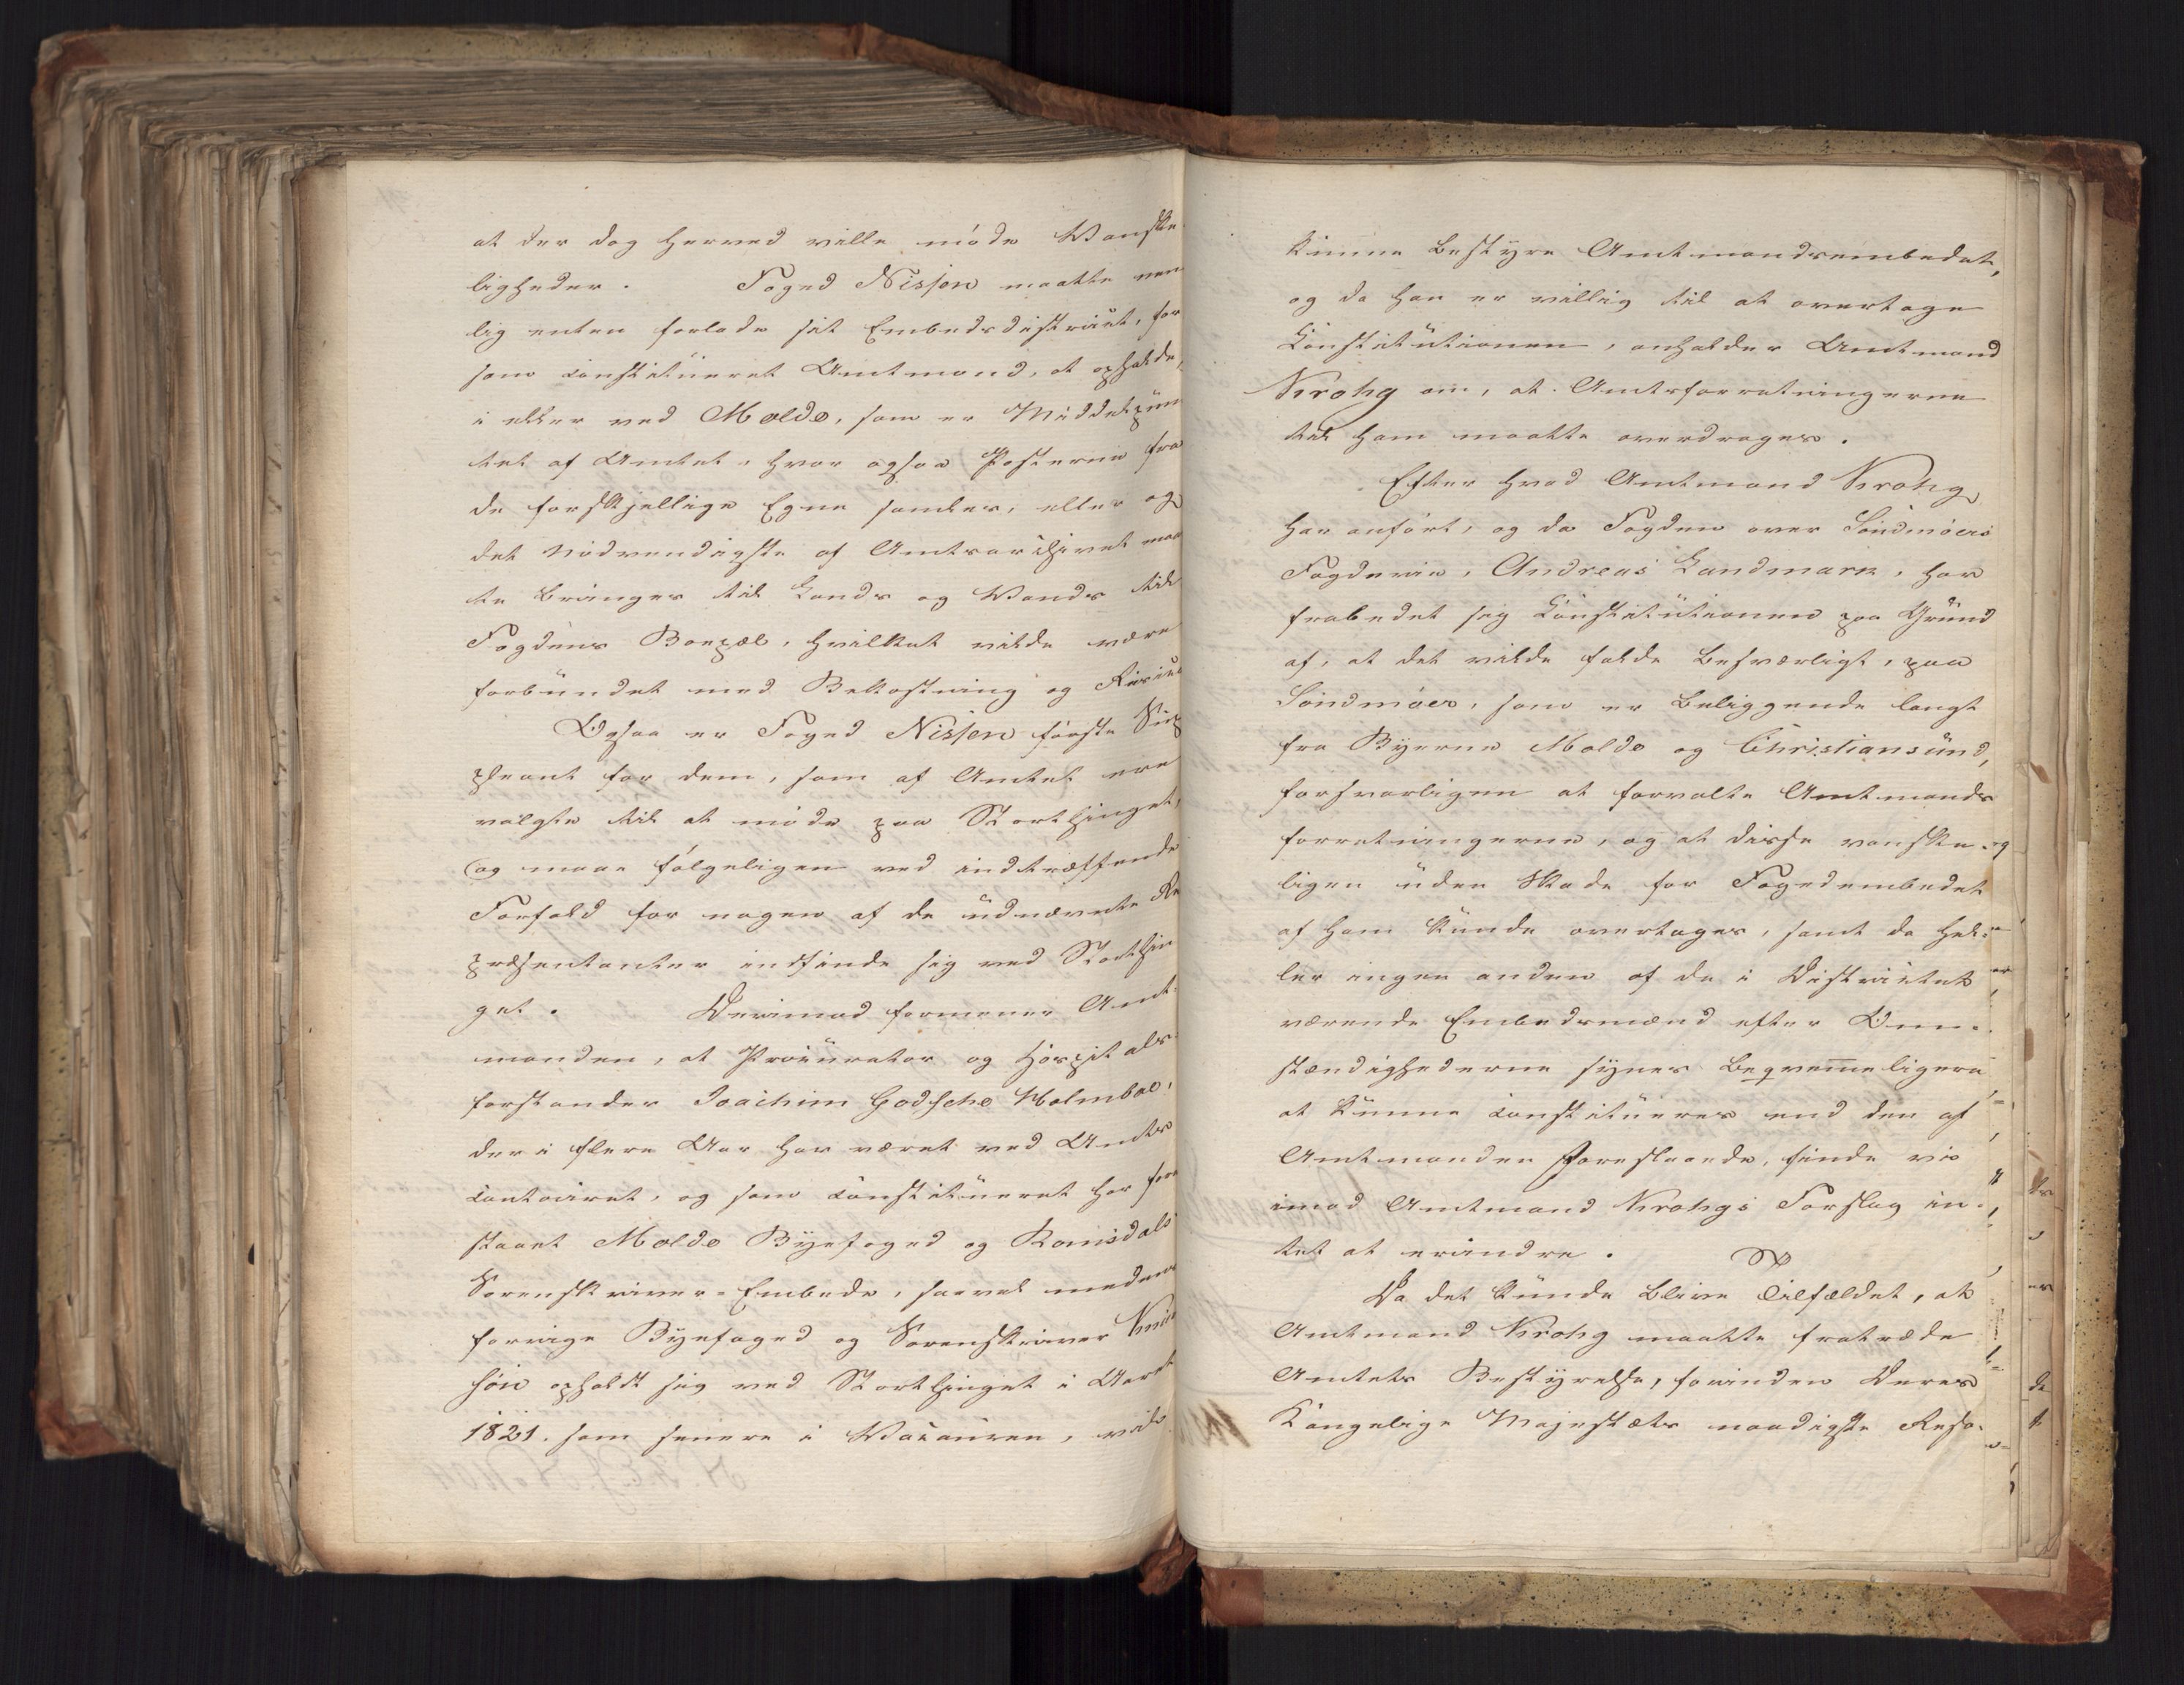 at der dog herved ville møde Vanske
ligheder. Foged Nissen maatte nem
lig enten forlade sit Embedsdistrict, for
som constitueret Amtmand, at opholde,
i eller ved Molde, som er Middelpun
ctet af Amtet, hvor ogsaa Posterne fra
de forskjellige Egne samles, eller og
det nødvendigste af Amtsarchivet maa
te bringes til Lands og Vands til
Fogdens Boepæl, hvilket vilde være
forbundet med Bekostning og Risico
Ogsaa er Foged Nissen første Sup
pleant for dem, som af Amtet ere
valgte til at møde paa Storthinget,
og maae følgeligen ved indtræffende
Forfald for nogen af de udnævnte Re
præsentanter indfinde sig ved Storthin
get. Derimod formener Amt-
manden, at Procurator og Hospitals-
forstander Joachim Godsche Holmboe,
der i flere Aar har været ved Amts
contoiret, og som constitueret har fore
staaet Molde Byefoged og Romsdals
Sorenskriver-Embede, saavel medens
forrige Byefoged og Sorenskriver Knud
søn opholdt sig ved Storthinget i Aaret
1821. som senere i Vacancen, vil
kunne bestyre Amtmandsembedet,
og da han er villig til at overtage
Constitutionen, anholder Amtmand
Krohg om, at Amtsforretningerne
til ham maatte overdrages.
Efter hvad Amtmand Krohg
har anført, og da Fogden over Søndmørs
Fogderie, Andreas Landmark, har
frabedet sig Constitutionen paa Grund
af, at det vilde falde besværligt, paa
Søndmøer, som er beliggende langt
fra Byerne Molde og Christiansund,
forsvarligen at forvalte Amtmands
forretningerne, og at disse vanske-
ligen uden Skade for Fogedembedet
af ham kunde overtages, samt da hel-
ler ingen anden af de i Districtet
værende Embedsmænd efter Om-
stændighederne synes beqvemmeligere
at kunne constitueres end den af
Amtmanden foreslaaede, finde vi
imod Amtmand Krohgs Forslag in-
tet at erindre.
Da det kunde blive Tilfældet, at
Amtmand Krohg maatte fratræde
Amtets Bestyrelse, forinden Deres
Kongelige Majestæts naadigste Reso-